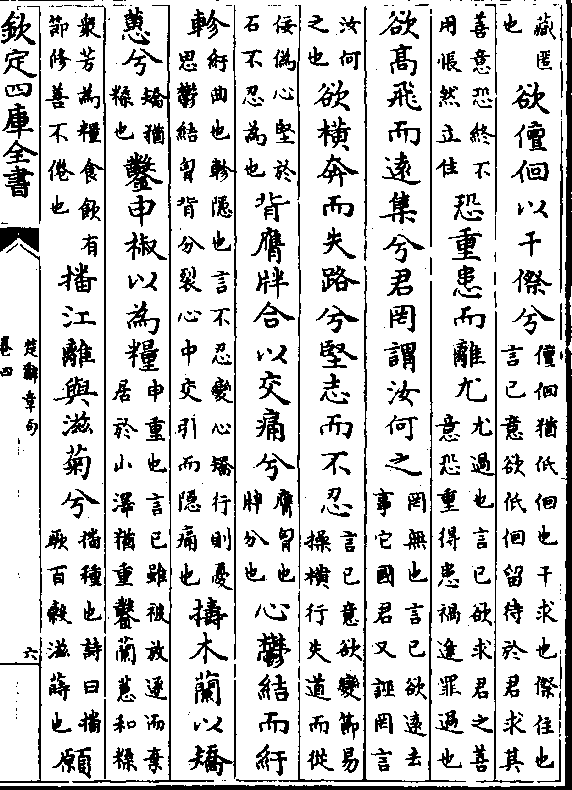 藏匿
也
欲儃佪以干傺兮
儃佪猶低佪也干求也傺住也
言己意欲低佪留待於君求其
善意恐終不
用悵然立住
恐重患而離尤
尤過也言己欲求君之善
意恐重得患禍逢罪過也
欲高飛而遠集兮君罔謂汝何之
罔無也言己欲遠去
事它國君又誣罔言
汝何
之也
欲橫奔而失路兮堅志而不忍
言己意欲變節易
操橫行失道而從
佞偽心堅於
石不忍為也
背膺牉合以交痛兮
膺胷也
牉分也
心鬱結而紆
軫
紆曲也軫隱也言不忍變心矯行則憂
思鬱結胷背分裂心中交引而隱痛也
擣木蘭以矯
蕙兮
矯猶
糅也
鑿申椒以為糧
申重也言己雖被放逐而棄
居於小澤猶重鑿蘭蕙和糅
衆芳為糧食飲有
節修善不倦也
播江離與滋菊兮
播種也詩曰播
厥百穀滋蒔也
願
欽定四庫全書
楚辭章句
卷四
六